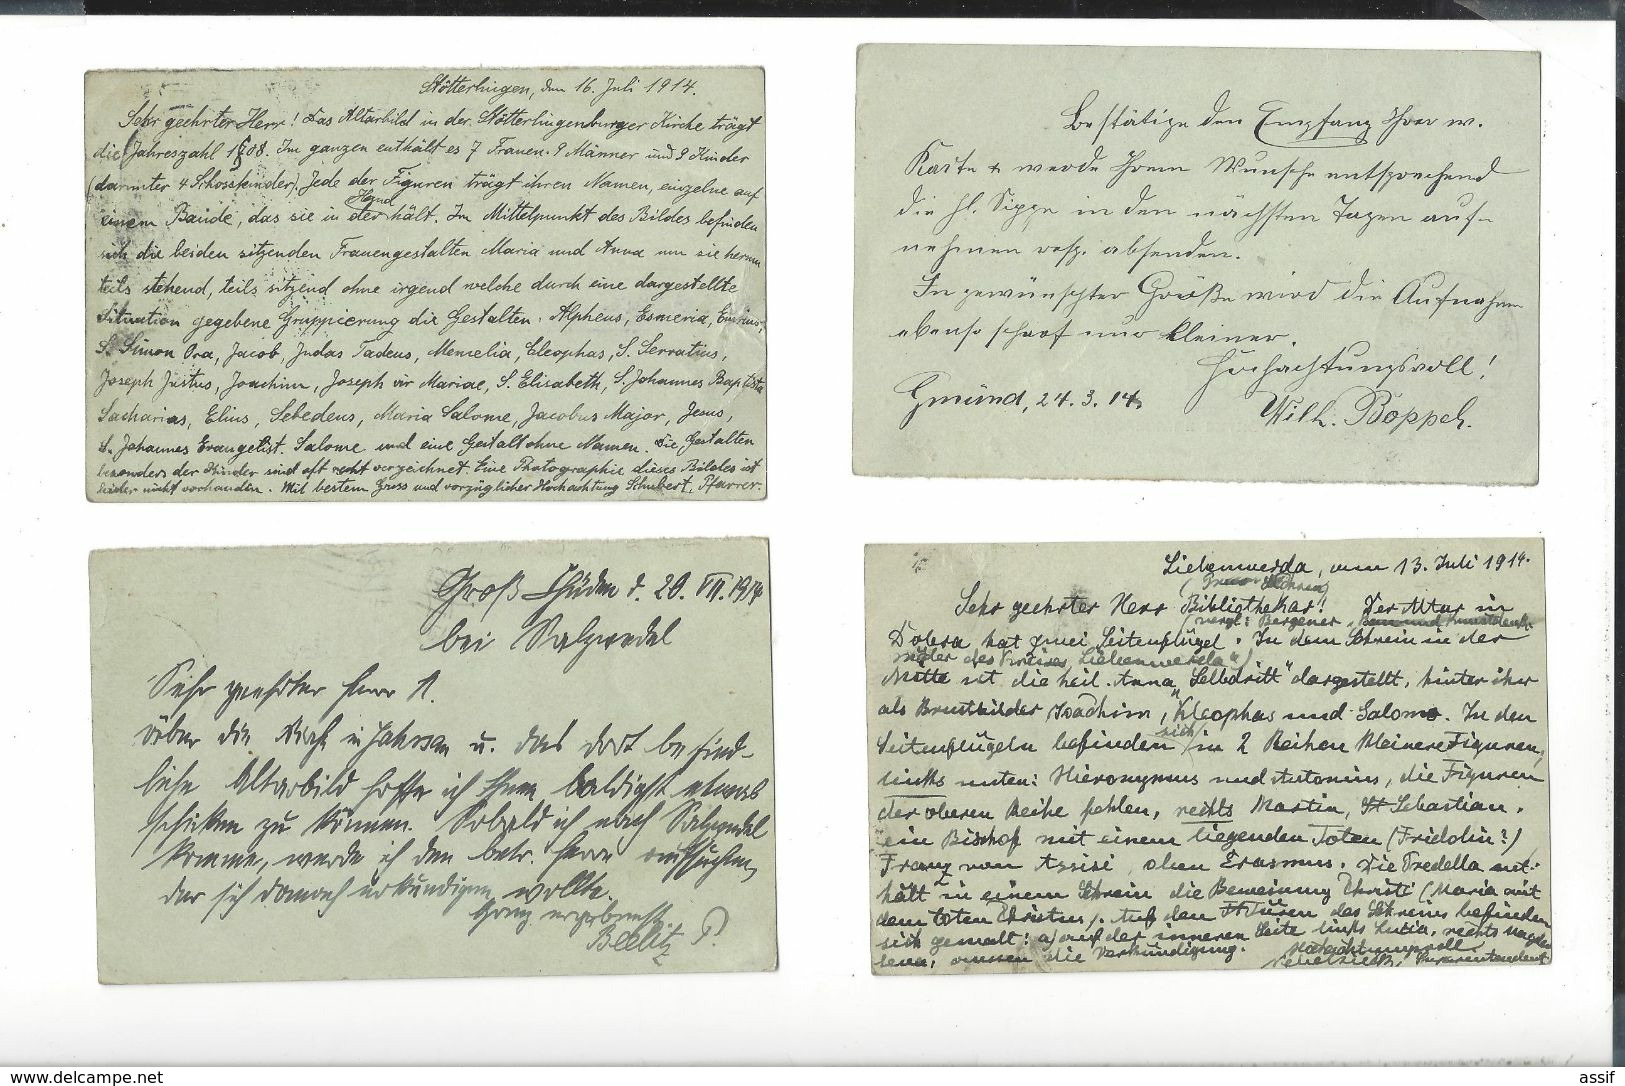 Stötterlingen, den 16. Juli 1914.
Sehr geehrter Herr! Das Altarbild in der Stötterlingenburger Kirche trägt
die Jahreszahl 1508. Im ganzen enthält es 7 Frauen. 9 Männer und 9 Kinder
(darunter 4 Schosskinder). Jede der Figuren trägt ihren Namen, einzelne auf
einem Bande, das sie in der Hand hält. Im Mittelpunkt des Bildes befinden
sich die beiden sitzenden Frauengestalten Maria und Anna um sie herum
teils stehend, teils sitzend ohne irgend welche durch eine dargestellte
Situation gegebene Gruppierung die Gestalten. Alpheus, Esmeria,
S. Simon Ora, Jacob, Judas Tadeus, Memelia, Cleophas, S. Serratius,
Joseph Justus, Joachim, Joseph vir Mariae, S. Elisabeth, S. Johannes Baptista
Sacharias, Elius, Sebedeus, Maria Salome, Jacobus Major, Jesus,
S. Johannes Evangelist. Salome und eine Gestalt ohne Namen. Die Gestalten
besonders der Kinder sind oft recht verzeichnet. Eine Photographie dieses Bildes ist
leider nicht vorhanden. Mit bestem Gruss und vorzüglicher Hochachtung Schubert, Pfarrer.
Bestätige den Empfang Ihrer w.
Karte & werde Ihrem Wunsche entsprechend
die hl. Sippe in den nächsten Tagen auf-
nehmen resp. absenden.
In gewünschter Größe wird die Aufnahme
ebenso scharf nur kleiner.
Hochachtungsvoll!
Gmünd, 24. 3. 14. Wilh. Boppel.
Groß Chüden d. 20. VII. 1914
bei Salzwedel
Sehr geehrter Herr
über die Kirche in Jahrsau u. das dort befind-
liche Altarbild hoffe ich Ihnen baldigst etwas
schicken zu können. Sobald ich nach Salzwedel
komme, werde ich den betr. Herrn aufsuchen,
der sich danach erkundigen wollte.
Ganz ergebenst
Beelitz P.
Liebenwerda, am 13. Juli 1914.
Sehr geehrter Herr Bibliothekar! Der Altar in
(vergl: Bergener Bau und Kunstdenk-
Dobra hat zwei Seitenflügel. In dem Schrein in der
mäler des Kreises Liebenwerda")
Mitte ist die heil. Anna „Selbdritt" dargestellt, hinter ihr
als Brustbilder Joachim, Kleophas und Salomo. In den
Seitenflügeln befinden sich in 2 Reihen kleinere Figuren,
links unten: Hieronymus und Antonius, die Figuren
der oberen Reihe fehlen, rechts Martin, Sebastian.
ein Bischof mit einem liegenden Toten (Fridolin?)
Franz von Assisi, oben Erasmus. Die Predella ent-
hält in einem Schrein die Beweinung Christi (Maria mit
dem toten Christus). Auf den Türen des Schreins befinden
sich gemalt: a) auf der inneren Seite links Lucia, rechts Magda-
lena, aussen die Verkündigung. Hochachtungsvoll
Superintendent
https://www.delcampe.net
assif